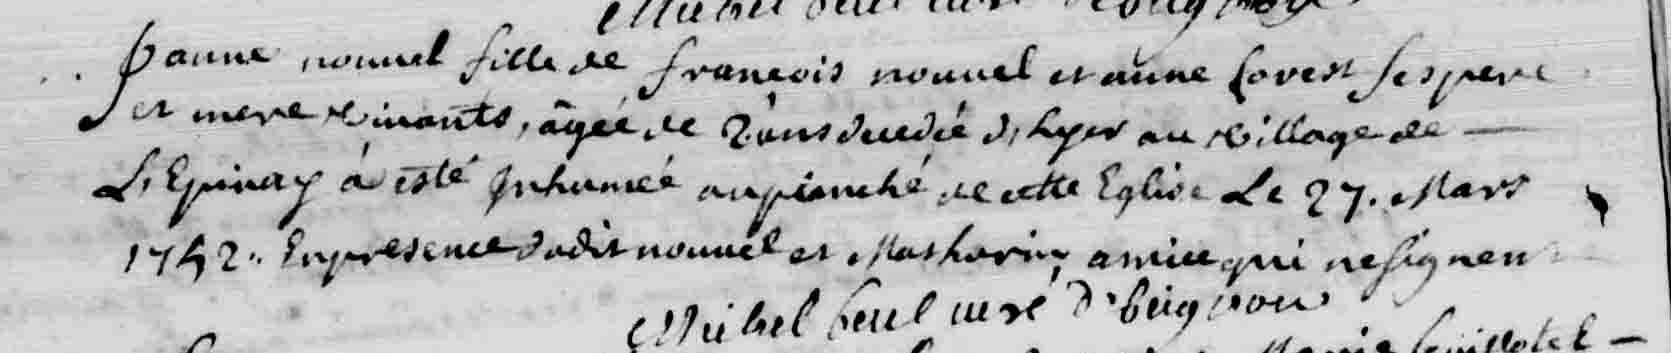 Janne nouvel fille de francois nouvel et anne forest ses pere
et mere vivants, agée de 2 ans decedée d'hyer au village de
L'Epinay a esté Inhumée au pianché de cette Eglise Le 27. Mars
1742. En presence dudit nouvel et Mathurin amice qui ne signent
Michel curé De beignon
Marie Guillotel